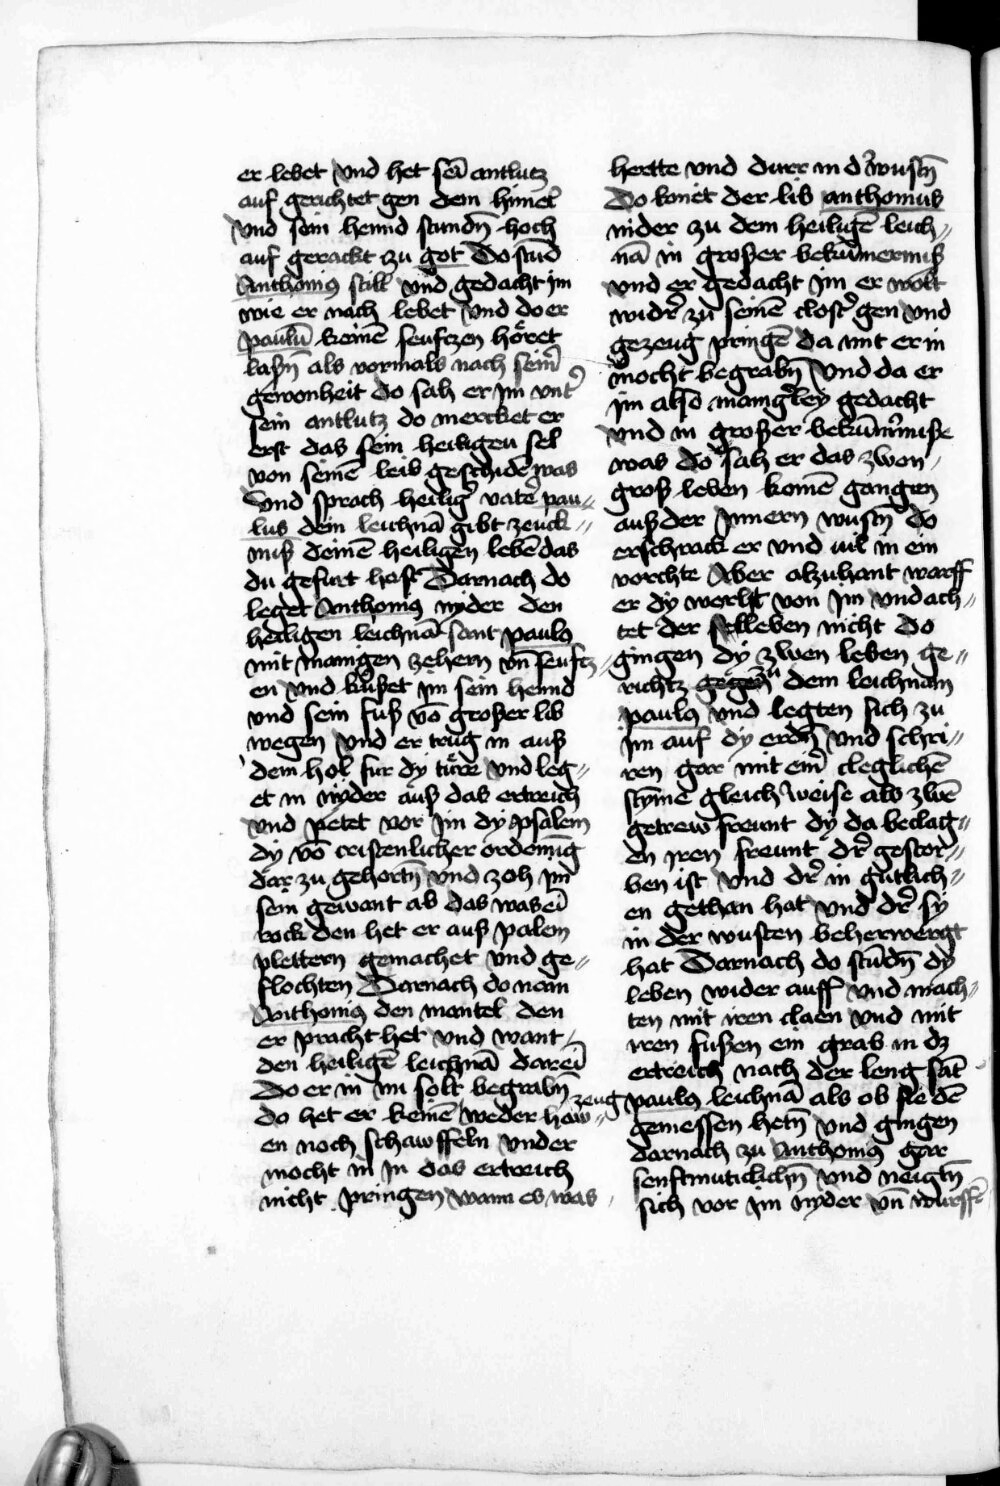 er lebet vnd het sei antlutz
auf gerichtet gen dem himel
vnd sein hennd stundn̄ hoch
auf gerackt zu got Do stūd
Anthonius still vnd gedacht im
wie er nach lebet vnd do er
paulū keinē seuftzen höret
laßn̄ als vormals nach seinr̄
gewonheit do sah er im vntr̄
sein antlutz do mercket er
erst das sein heiligeu sel
von seinē leib geschidē was
vnd sprach heiligr̄ vater pau-
lus dein leichnā gibt zeuck-
nuß deinē heiligen lebē das
du gefurt hast Darnach do
leget Anthonius nyder den
heiligen leichnā sant paulus
mit manigen zehern vn̄ seuftz-
en vnd kußet im sein hennd
vnd sein fuß vō großer lib
wegen vnd er trug in auß
dem hol fur dy turr vnd leg-
et in nyder auß das ertreich
vnd petet vor im dy psalem
dy vō cristenlicher ordenūg
dar zu gehortn̄ vnd zoh im
sein gewant ab das was eī
rock den het er auß palem
plettern gemachet vnd ge-
flochten Darnach do nam
Anthonius den mantel den
er pracht het vnd want
den heiligē leichnā dareī
Do er in im solt begrabn̄
do het er keinē zeug weder haw-
en noch schawffeln vnder
mocht in in das ertreich
nicht pringen wann es was
hertte vnd durr in dr̄ wustn̄
Do koniet der lib anthonius
nider zu dem heiligē leich-
nā in großer bekūmernuß
vnd er gedacht im er wolt
widr̄ zu seinē clostr̄ gen vnd
gezeug pringē da mit er in
mocht begrabn̄ vnd da er
im also manigrley gedacht
vnd in großer bekūmr̄nuße
was do sah er das zwen
groß leben komē gangen
auß der innern wustn̄ do
erschrack er vnd viel in ein
vorchte Aber alzuhant warff
er dy werlt von im vnd ach-
tet der leben nicht do
gingen dy zwen leben ge-
richtz dem leichnam
paulus vnd legten sich zu
im auf dy erdn̄ vnd schri-
ren gar mit einr̄ cleglichē
stymē gleich weise als zwē
getrew freunt dy da beclag-
en iren freunt dr̄ gestor-
ben ist vnd dr̄ in gutlich-
en gethan hat vnd dr̄ sy
in der wusten beherwergt
hat Darnach do stūdn̄ dy
leben wider auff vnd mach-
ten mit iren claen vnd mit
iren fußen ein grab in dz
ertreich nach der leng sāt
paulus leichnā als ob sie dē
gemessen hetn̄ vnd gingen
darnach zu Anthonius gar
senftmuticlichn̄ vnd neigtn̄
sich vor im nyder vn̄ wurffn̄